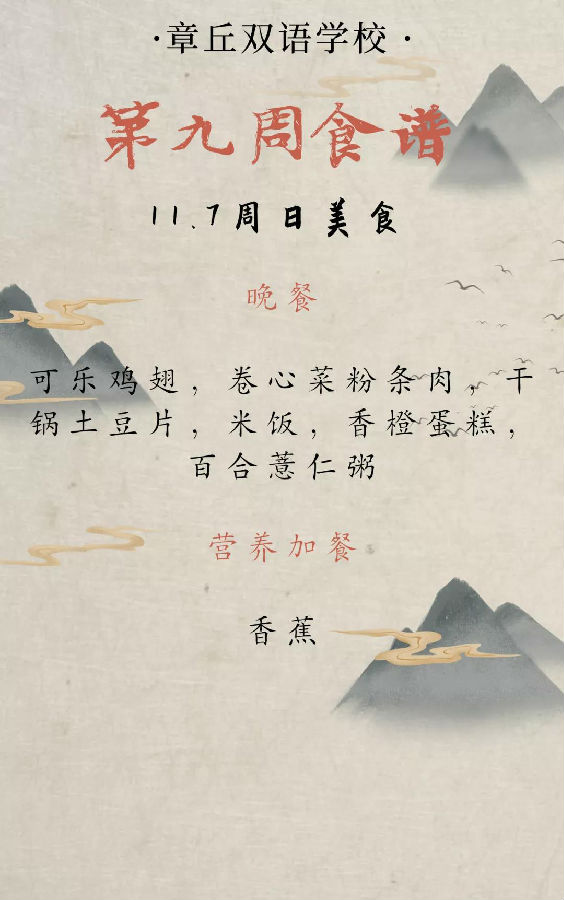 ·章丘双语学校·
第九周食谱
11.7周日美食
晚餐
可乐鸡翅，卷心菜粉条肉，干
锅土豆片，米饭，香橙蛋糕，
百合薏仁粥
营养加餐
香蕉